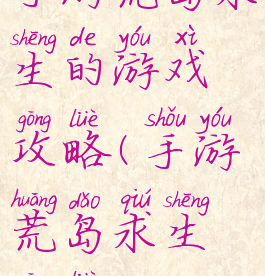 shēng de yóu xì
生的游戏
gōng lüè shǒu yóu
攻略(手游
huāng dǎo qiú shēng
荒岛求生